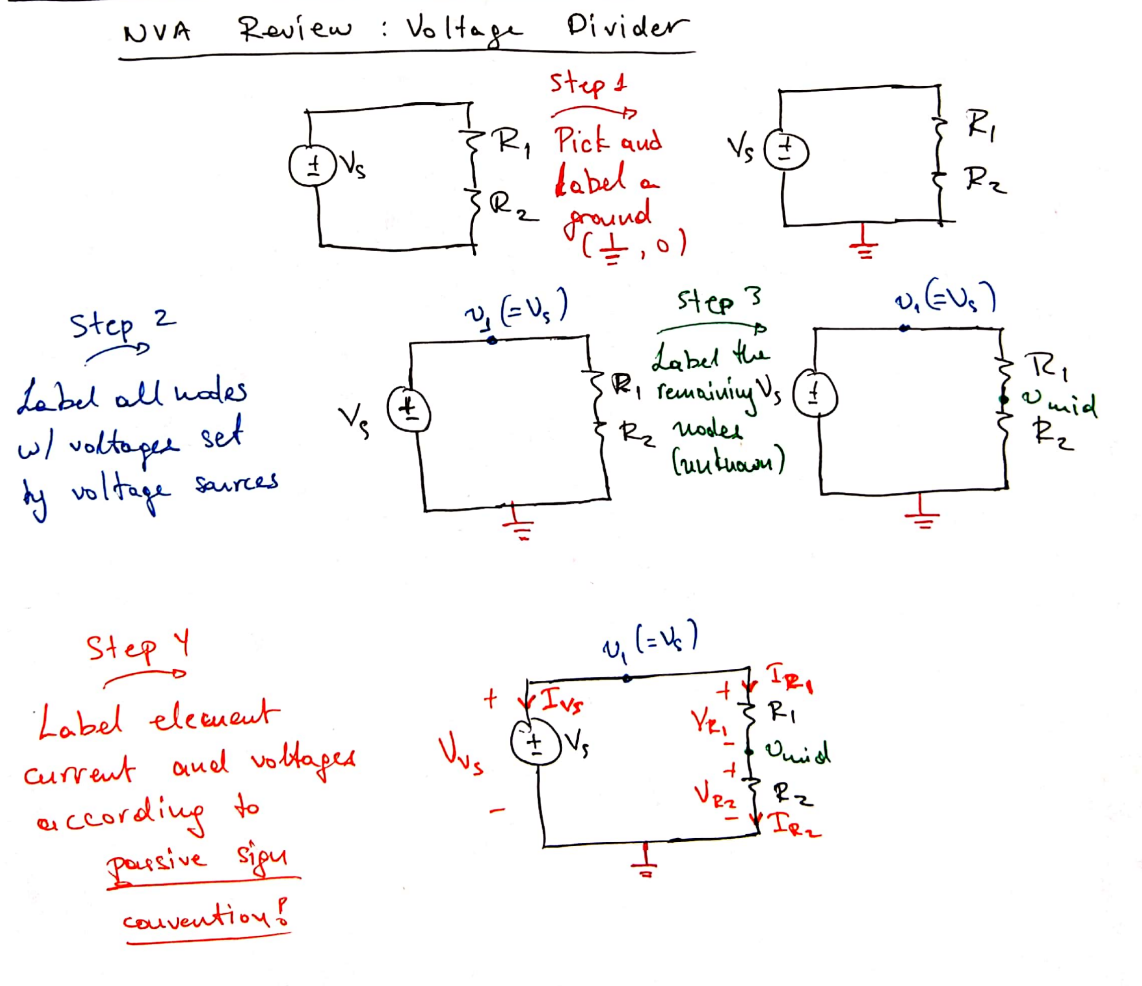 NVA Review : Voltage Divider
Step 1
Pick and
Label a
ground
(⏚, 0)
± Vs
R1
R2
Vs ±
R1
R2
Step 2
Label all nodes
w/ voltages set
by voltage sources
v1 (=Vs)
Vs ±
R1
R2
Step 3
Label the
remaining
nodes
(unknown)
v1 (=Vs)
Vs ±
R1
vmid
R2
Step 4
Label element
current and voltages
according to
passive sign
convention!
v1 (=Vs)
+ IVs
VVs
± Vs
-
+ IR1
VR1 R1
-
vmid
+
VR2 R2
- IR2